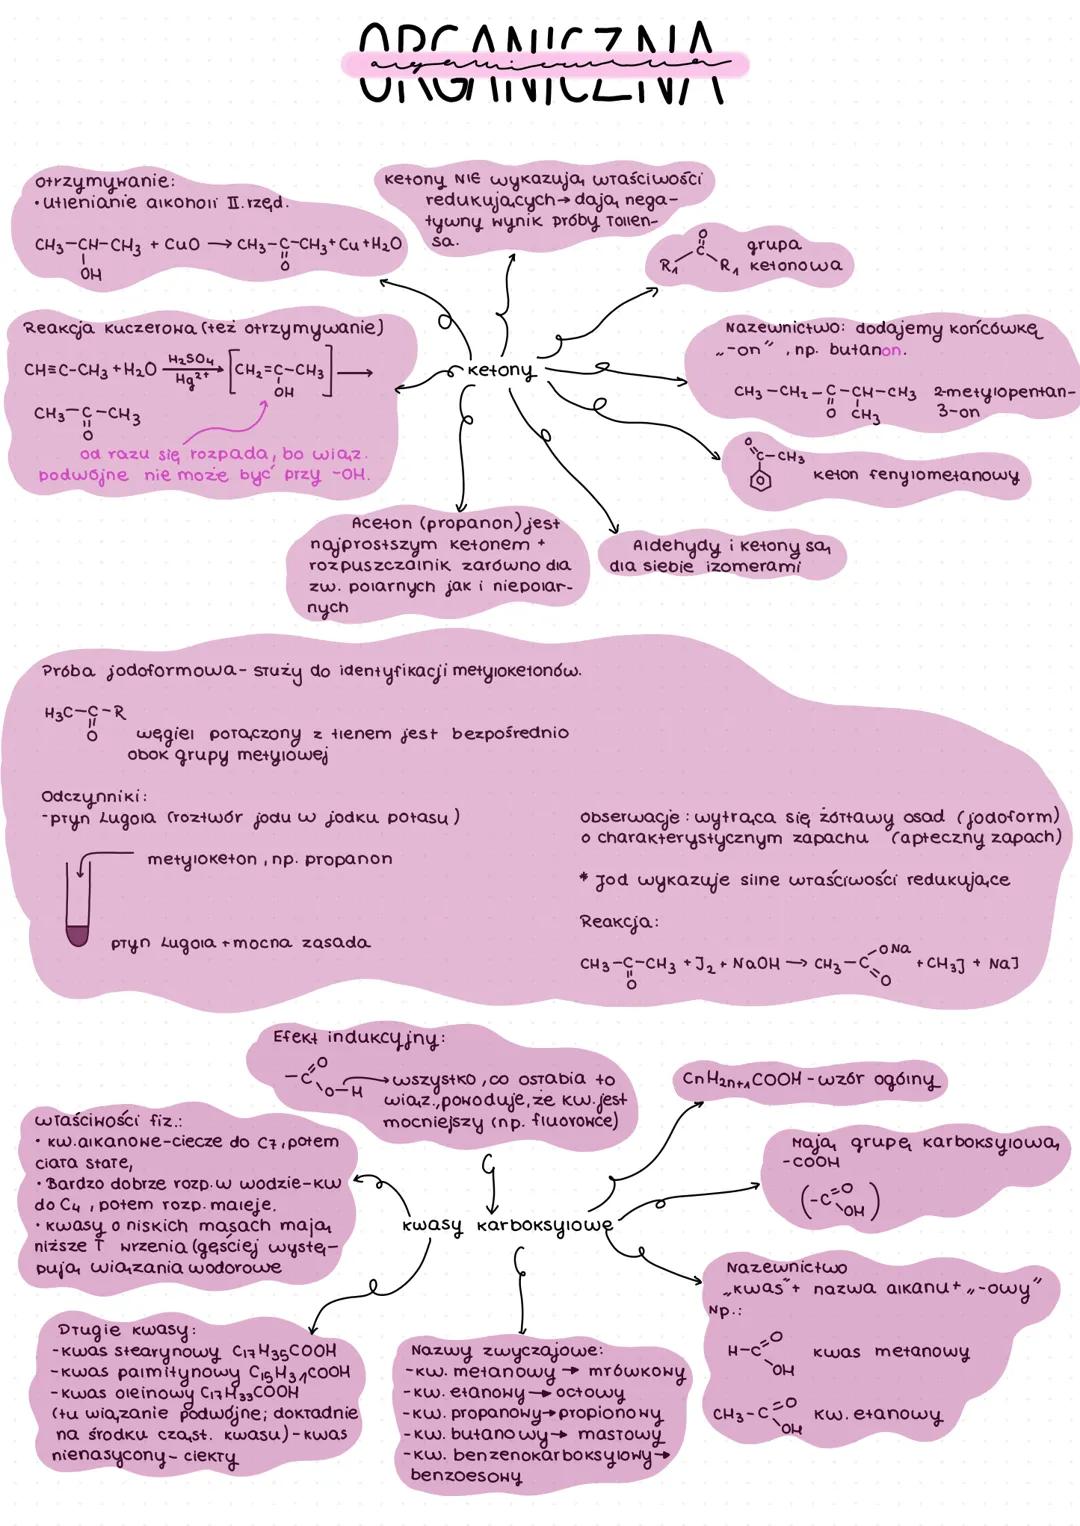 ORGANICZNA
organiczna
otrzymywanie:
• utlenianie alkoholi II. rzęd.
CH3-CH-CH3 + CuO → CH3-C-CH3 + Cu + H2O
OH
O
ketony NIE wykazują właściwości
redukujących → dają nega-
tywny wynik próby Tollen-
sa.
O
C
R1 R1
grupa
ketonowa
Reakcja Kuczerowa (też otrzymywanie)
CH≡C-CH3 + H2O H2SO4 Hg2+ → [CH2=C-CH3] →
OH
CH3-C-CH3
O
od razu się rozpada, bo wiąz.
podwójne nie może być przy -OH.
ketony
Nazewnictwo: dodajemy końcówkę
„-on” , np. butanon.
CH3-CH2-C-CH-CH3 2-metylopentan-
O CH3 3-on
O
C-CH3
keton fenylometanowy
Aceton (propanon) jest
najprostszym ketonem +
rozpuszczalnik zarówno dla
zw. polarnych jak i niepolar-
nych
Aldehydy i ketony są
dla siebie izomerami
Próba jodoformowa- służy do identyfikacji metyloketonów.
H3C-C-R
O
węgiel połączony z tlenem jest bezpośrednio
obok grupy metylowej
Odczynniki:
-płyn Lugola (roztwór jodu w jodku potasu)
metyloketon, np. propanon
płyn Lugola + mocna zasada
obserwacje: wytrąca się żółtawy osad (jodoform)
o charakterystycznym zapachu (apteczny zapach)
* Jod wykazuje silne właściwości redukujące
Reakcja:
CH3-C-CH3 + J2 + NaOH → CH3-C-ONa + CH3J + NaJ
O
O
Efekt indukcyjny:
-C=O
O-H
→ wszystko, co osłabia to
wiąz., powoduje, że kw. jest
mocniejszy (np. fluorowce)
CnH2n+1COOH - wzór ogólny
właściwości fiz.:
• kw. alkanowe-ciecze do C7, potem
ciała stałe,
• Bardzo dobrze rozp. w wodzie-kw
do C4, potem rozp. maleje.
• kwasy o niskich masach mają
niższe T wrzenia (gęściej wystę-
pują wiązania wodorowe
Mają grupę karboksylową
-COOH
(-C=O OH)
kwasy karboksylowe
Nazewnictwo
„kwas” + nazwa alkanu + „-owy”
Np.:
H-C=O
OH
kwas metanowy
CH3-C=O
OH
kw. etanowy
Długie kwasy:
-kwas stearynowy C17H35COOH
-kwas palmitynowy C15H31COOH
-kwas oleinowy C17H33COOH
(tu wiązanie podwójne; dokładnie
na środku cząst. kwasu)-kwas
nienasycony- ciekły
Nazwy zwyczajowe:
-kw. metanowy → mrówkowy
-kw. etanowy → octowy
-kw. propanowy → propionowy
-kw. butanowy → masłowy
-kw. benzenokarboksylowy →
benzoesowy